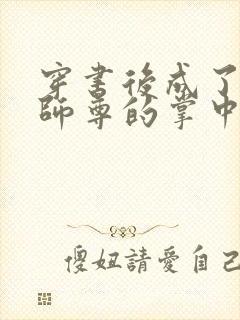 穿書後成了
師尊的掌中
傻妞請愛自己